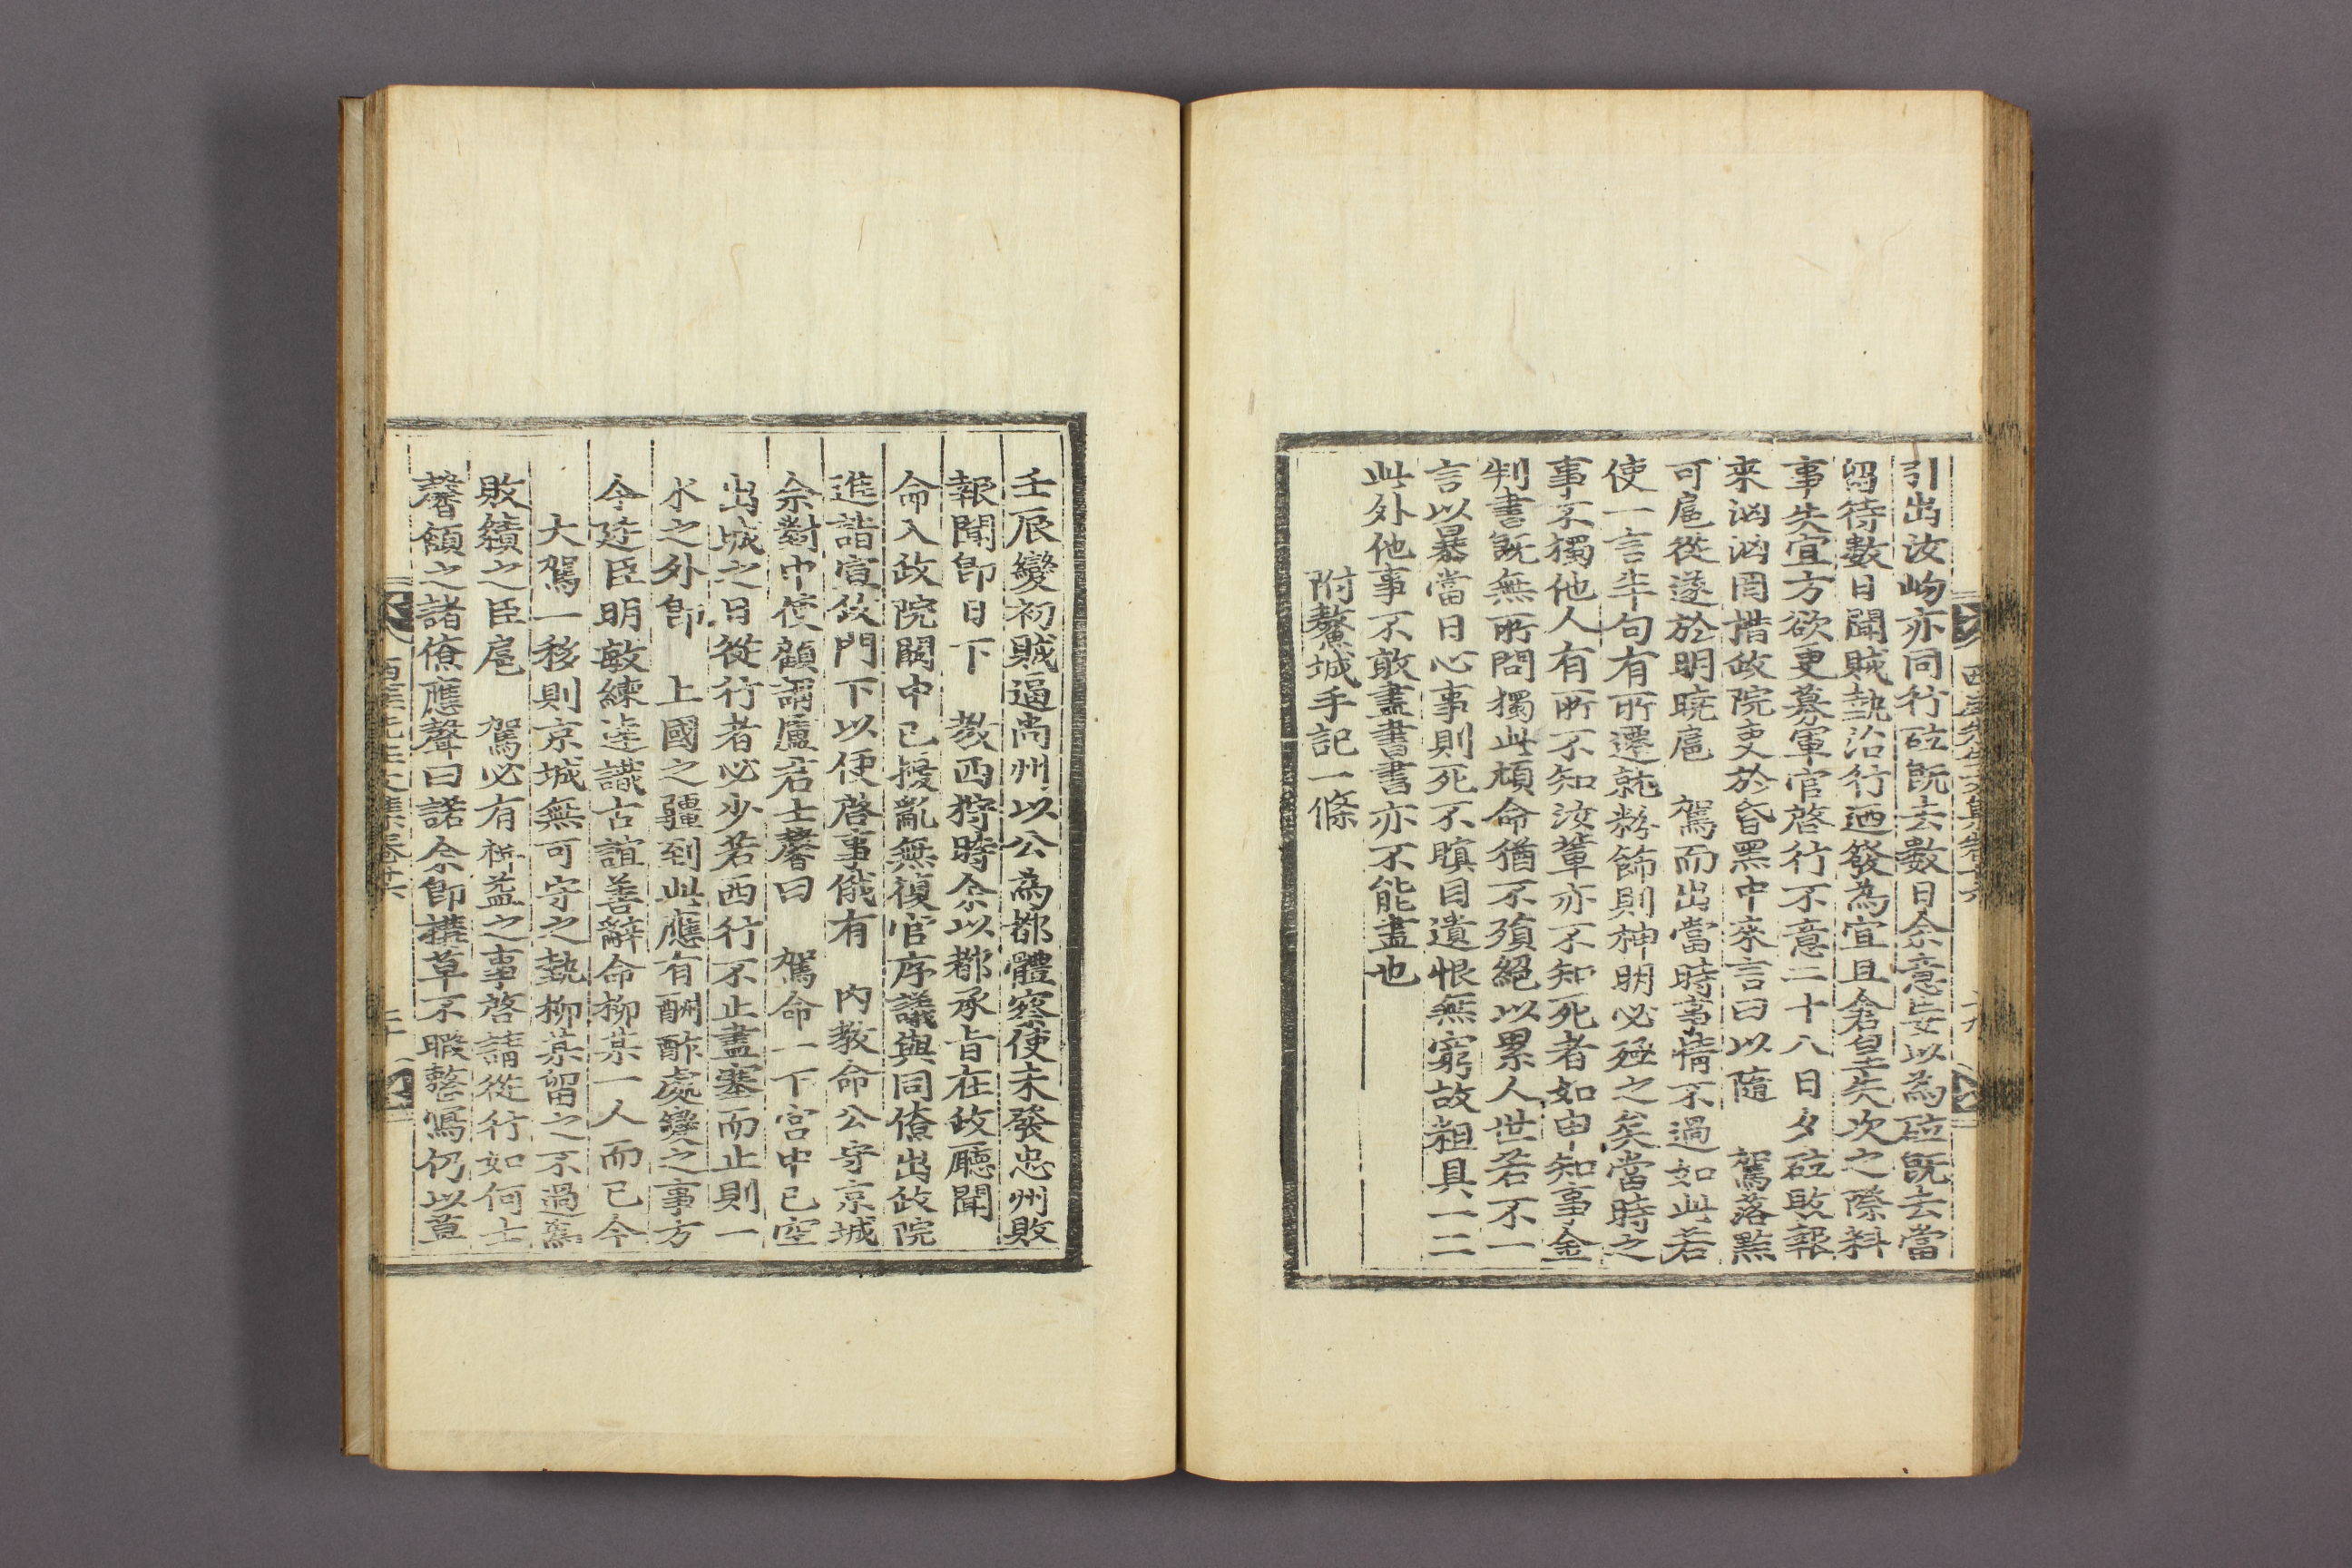 引出汝岉亦同行砬既去數日余意妄以爲砬既去當
留待數日聞賊勢沿行迺發為宜且倉皇失次之際料
事失宜方欲更募軍官啓行不意二十八日夕砬敗報
來洶洶罔措政院吏於昏黑中來言曰以隨 駕落點
可扈從遂於明曉扈 駕而出當時事情不過如此若
使一言半句有所遷就粉飾則神明必殛之矣當時之
事不獨他人有所不知汝輩亦不知死者如申知事金
判書既無所問獨此頑命猶不殞絕以累人世若不一
言以暴當日心事則死不瞑目遺恨無窮故粗具一二
此外他事不敢盡書書亦不能盡也
附鰲城手記一條
西厓先生文集卷十六
十九
壬辰變初賊逼尚州以公為都體察使未發忠州敗
報聞卽日下 敎西狩時余以都承旨在政廳聞
命入政院闕中已擾亂無復官序議與同僚出政院
進詣宣政門下以便啓事俄有 內敎命公守京城
余對中使顧謂盧君士馨曰 駕命一下宮中已空
出城之日從行者必少若西行不止盡塞而止則一
水之外卽 上國之疆到此應有酬酢處變之事方
今廷臣明敏練達識古誼善辭命柳某一人而已今
大駕一移則京城無可守之勢柳某留之不過為
敗績之臣扈 駕必有裨益之事啓請從行如何士
馨頷之諸僚應聲曰諾余卽搆草不暇整寫仍以草
西厓先生文集卷十六
二十